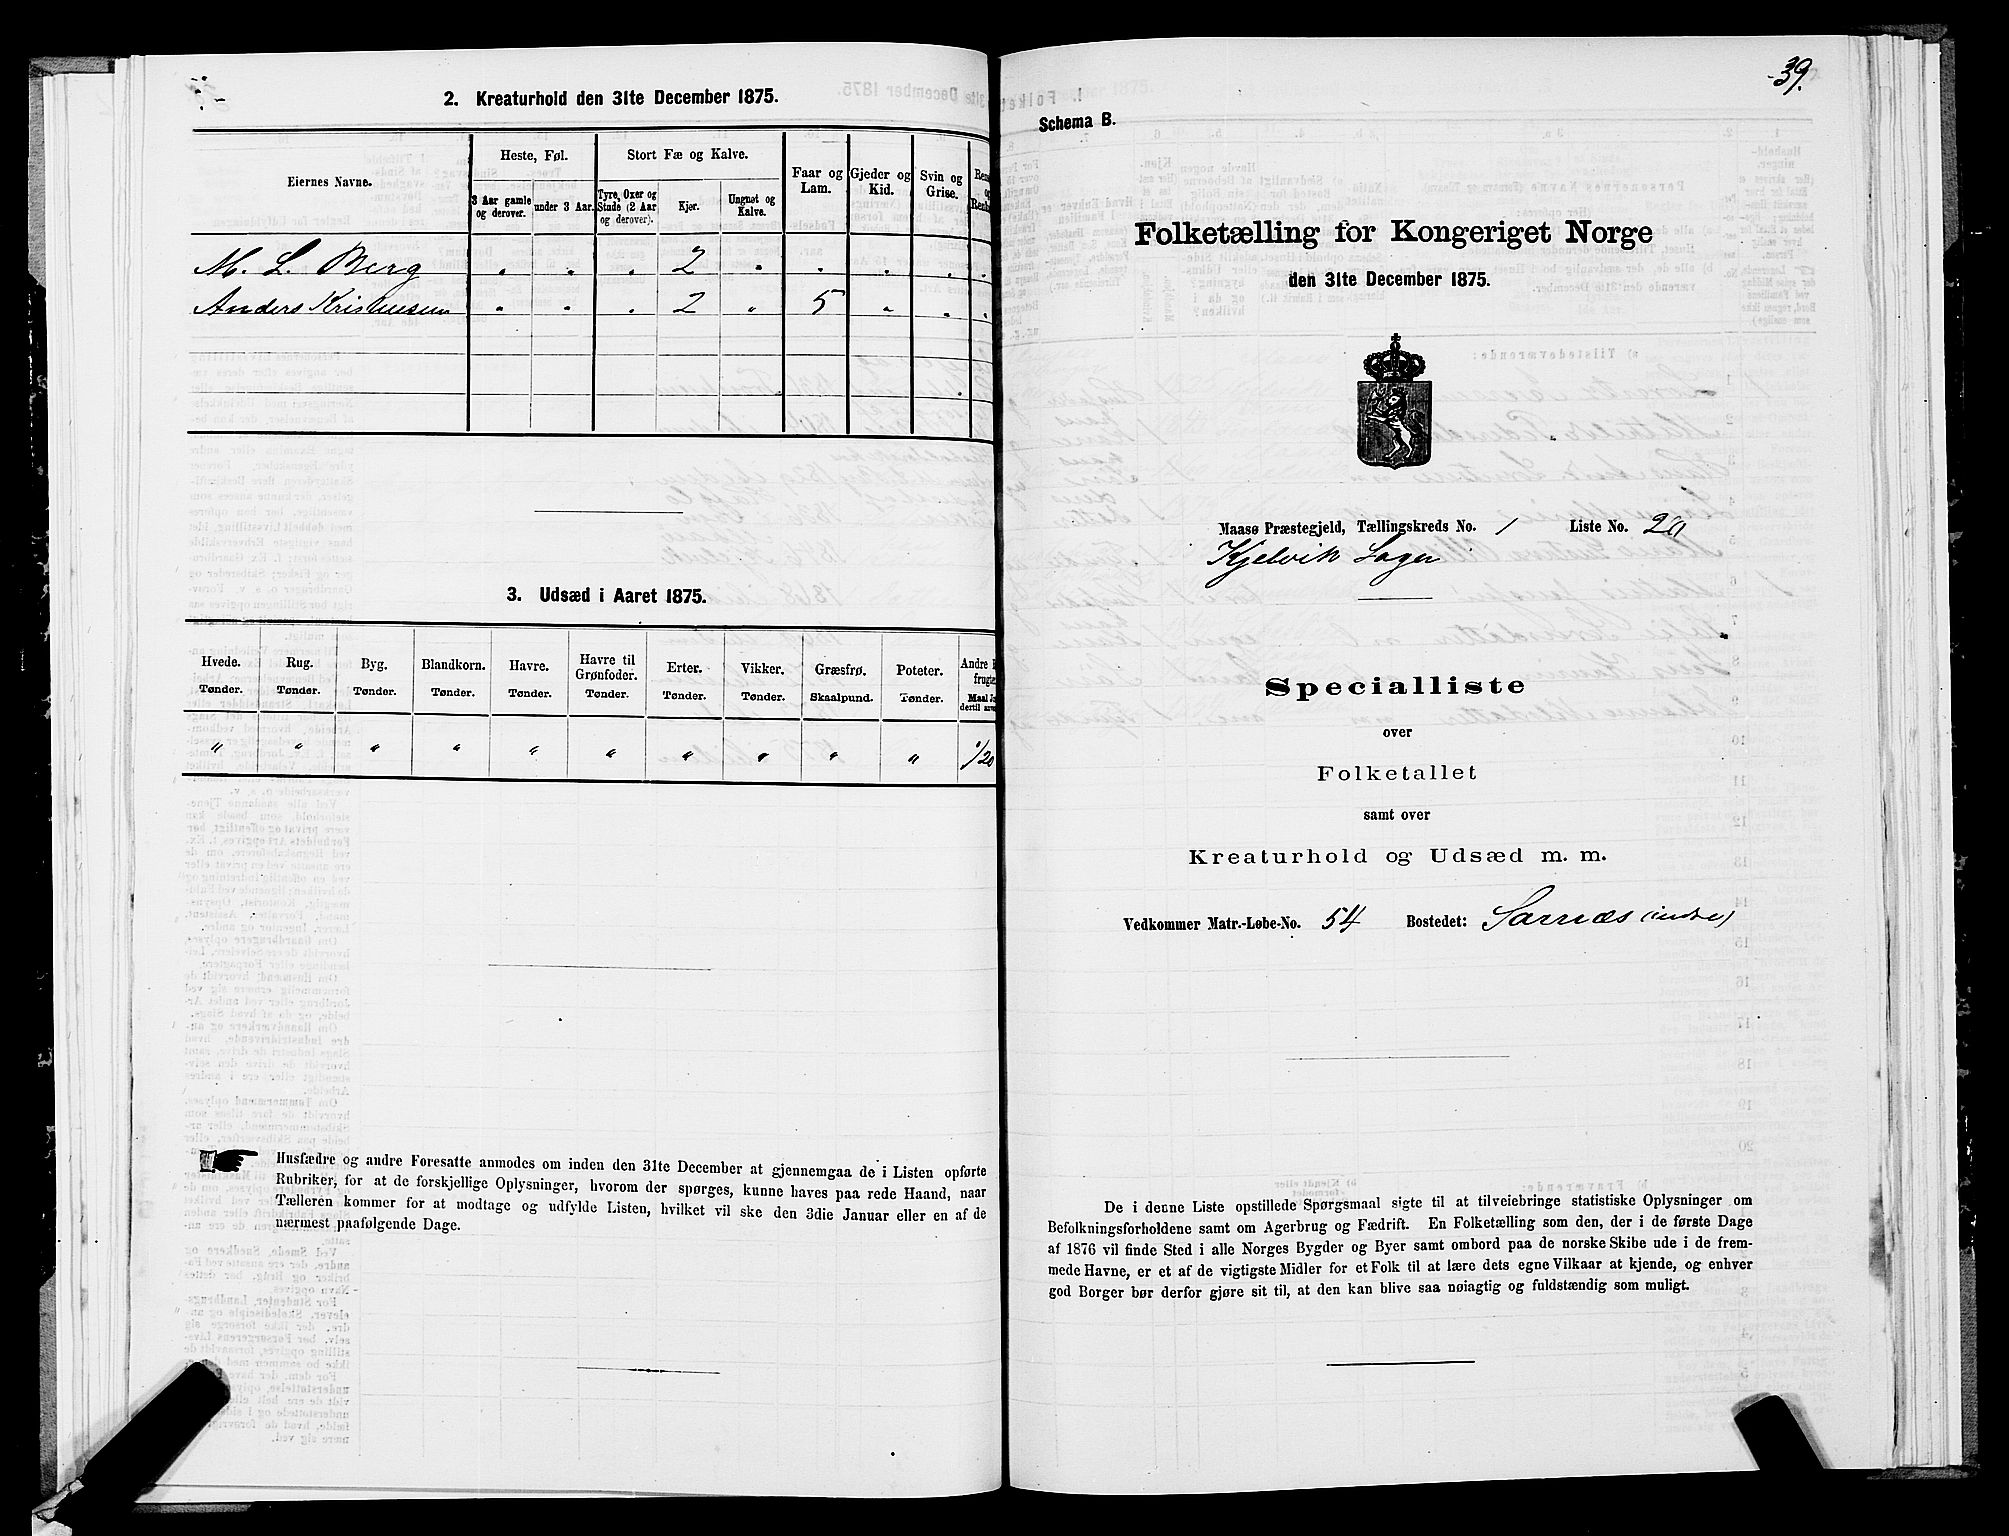 2. Kreaturhold den 31te December 1875.
Eiernes Navne.
Heste, Føl.
3 Aar gamle og derover.
under 3 Aar.
Stort Fæ og Kalve.
Tyre, Oxer og Stude (2 Aar og derover).
Kjør.
Ungnøt og Kalve.
Faar og Lam.
Gjeder og Kid.
Svin og Grise.
M. L. Berg " " " 2 " " " " "
Anders Kristensen " " " 2 " 5 " " "
3. Udsæd i Aaret 1875.
Hvede. Rug. Byg. Blandkorn. Havre. Havre til Grønfoder. Erter. Vikker. Græsfrø. Poteter. Andre
Tønder. Tønder. Tønder. Tønder. Tønder. Tønder. Tønder. Tønder. Skaalpund. Tønder. Maal
" " " " " " " " " " 1/20
Husfædre og andre Foresatte anmodes om inden den 31te December at gjennemgaa de i Listen opførte
Rubriker, for at de forskjellige Oplysninger, hvorom der spørges, kunne haves paa rede Haand, naar
Tælleren kommer for at modtage og udfylde Listen, hvilket vil ske den 3die Januar eller en af de
nærmest paafølgende Dage.
39.
Schema B.
Folketælling for Kongeriget Norge
den 31te December 1875.
Maasø Præstegjeld, Tællingskreds No. 1 Liste No. 20
Kjelvik Sogn
Specialliste
over
Folketallet
samt over
Kreaturhold og Udsæd m. m.
Vedkommer Matr.-Løbe-No. 54 Bostedet: Sarnæs (indre)
De i denne Liste opstillede Spørgsmaal sigte til at tilveiebringe statistiske Oplysninger om
Befolkningsforholdene samt om Agerbrug og Fædrift. En Folketælling som den, der i de første Dage
af 1876 vil finde Sted i alle Norges Bygder og Byer samt ombord paa de norske Skibe ude i de frem-
mede Havne, er et af de vigtigste Midler for et Folk til at lære dets egne Vilkaar at kjende, og enhver
god Borger bør derfor gjøre sit til, at den kan blive saa nøiagtig og fuldstændig som muligt.